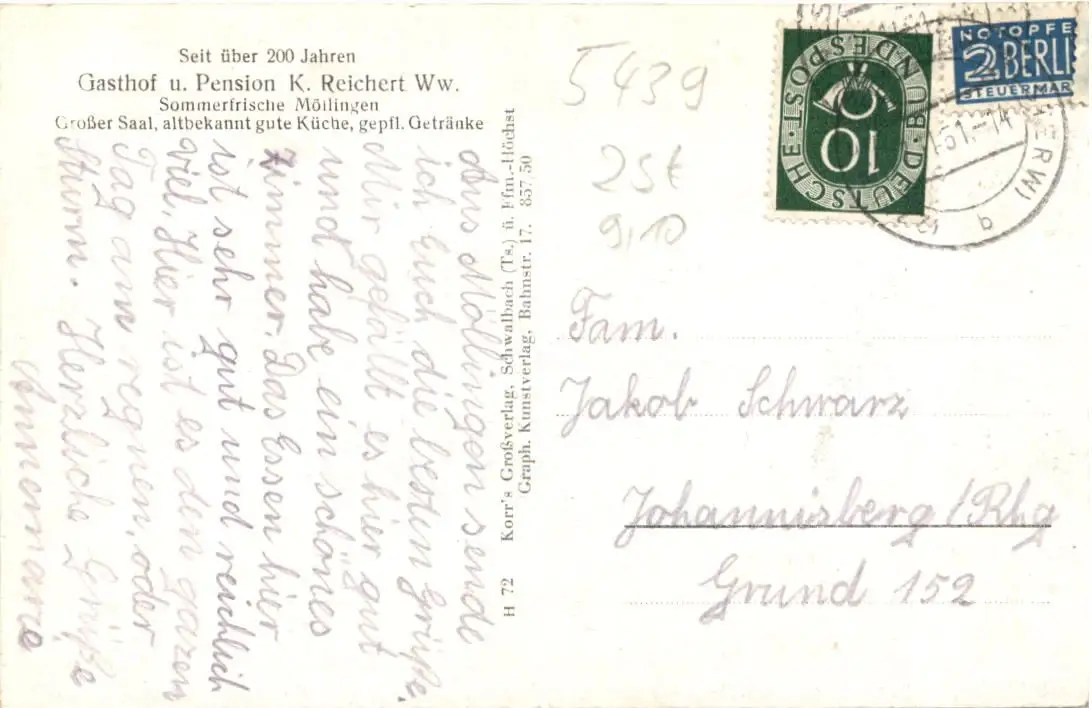 Seit über 200 Jahren
Gasthof u. Pension K. Reichert Ww.
Sommerfrische Möllingen
Großer Saal, altbekannt gute Küche, gepfl. Getränke
Aus Möllingen sende
ich Euch die besten Grüße.
Mir gefällt es hier gut
und habe ein schönes
Zimmer. Das Essen hier
ist sehr gut und reichlich
viel. Hier ist es den ganzen
Tag am regnen, oder
Sturm. Herzliche Grüße
Annemarie
H 72 Korr's Großverlag, Schwalbach (Ts.) ü. Ffm.-Höchst
Graph. Kunstverlag, Bahnstr. 17. 857 50
5439
25t
9,10
DEUTSCHE BUNDESPOST
10
NOTOPFER
2 BERLIN
STEUERMARKE
51.-14
ERW)
q
Fam.
Jakob Schwarz
Johannisberg/Rhg
Grund 152